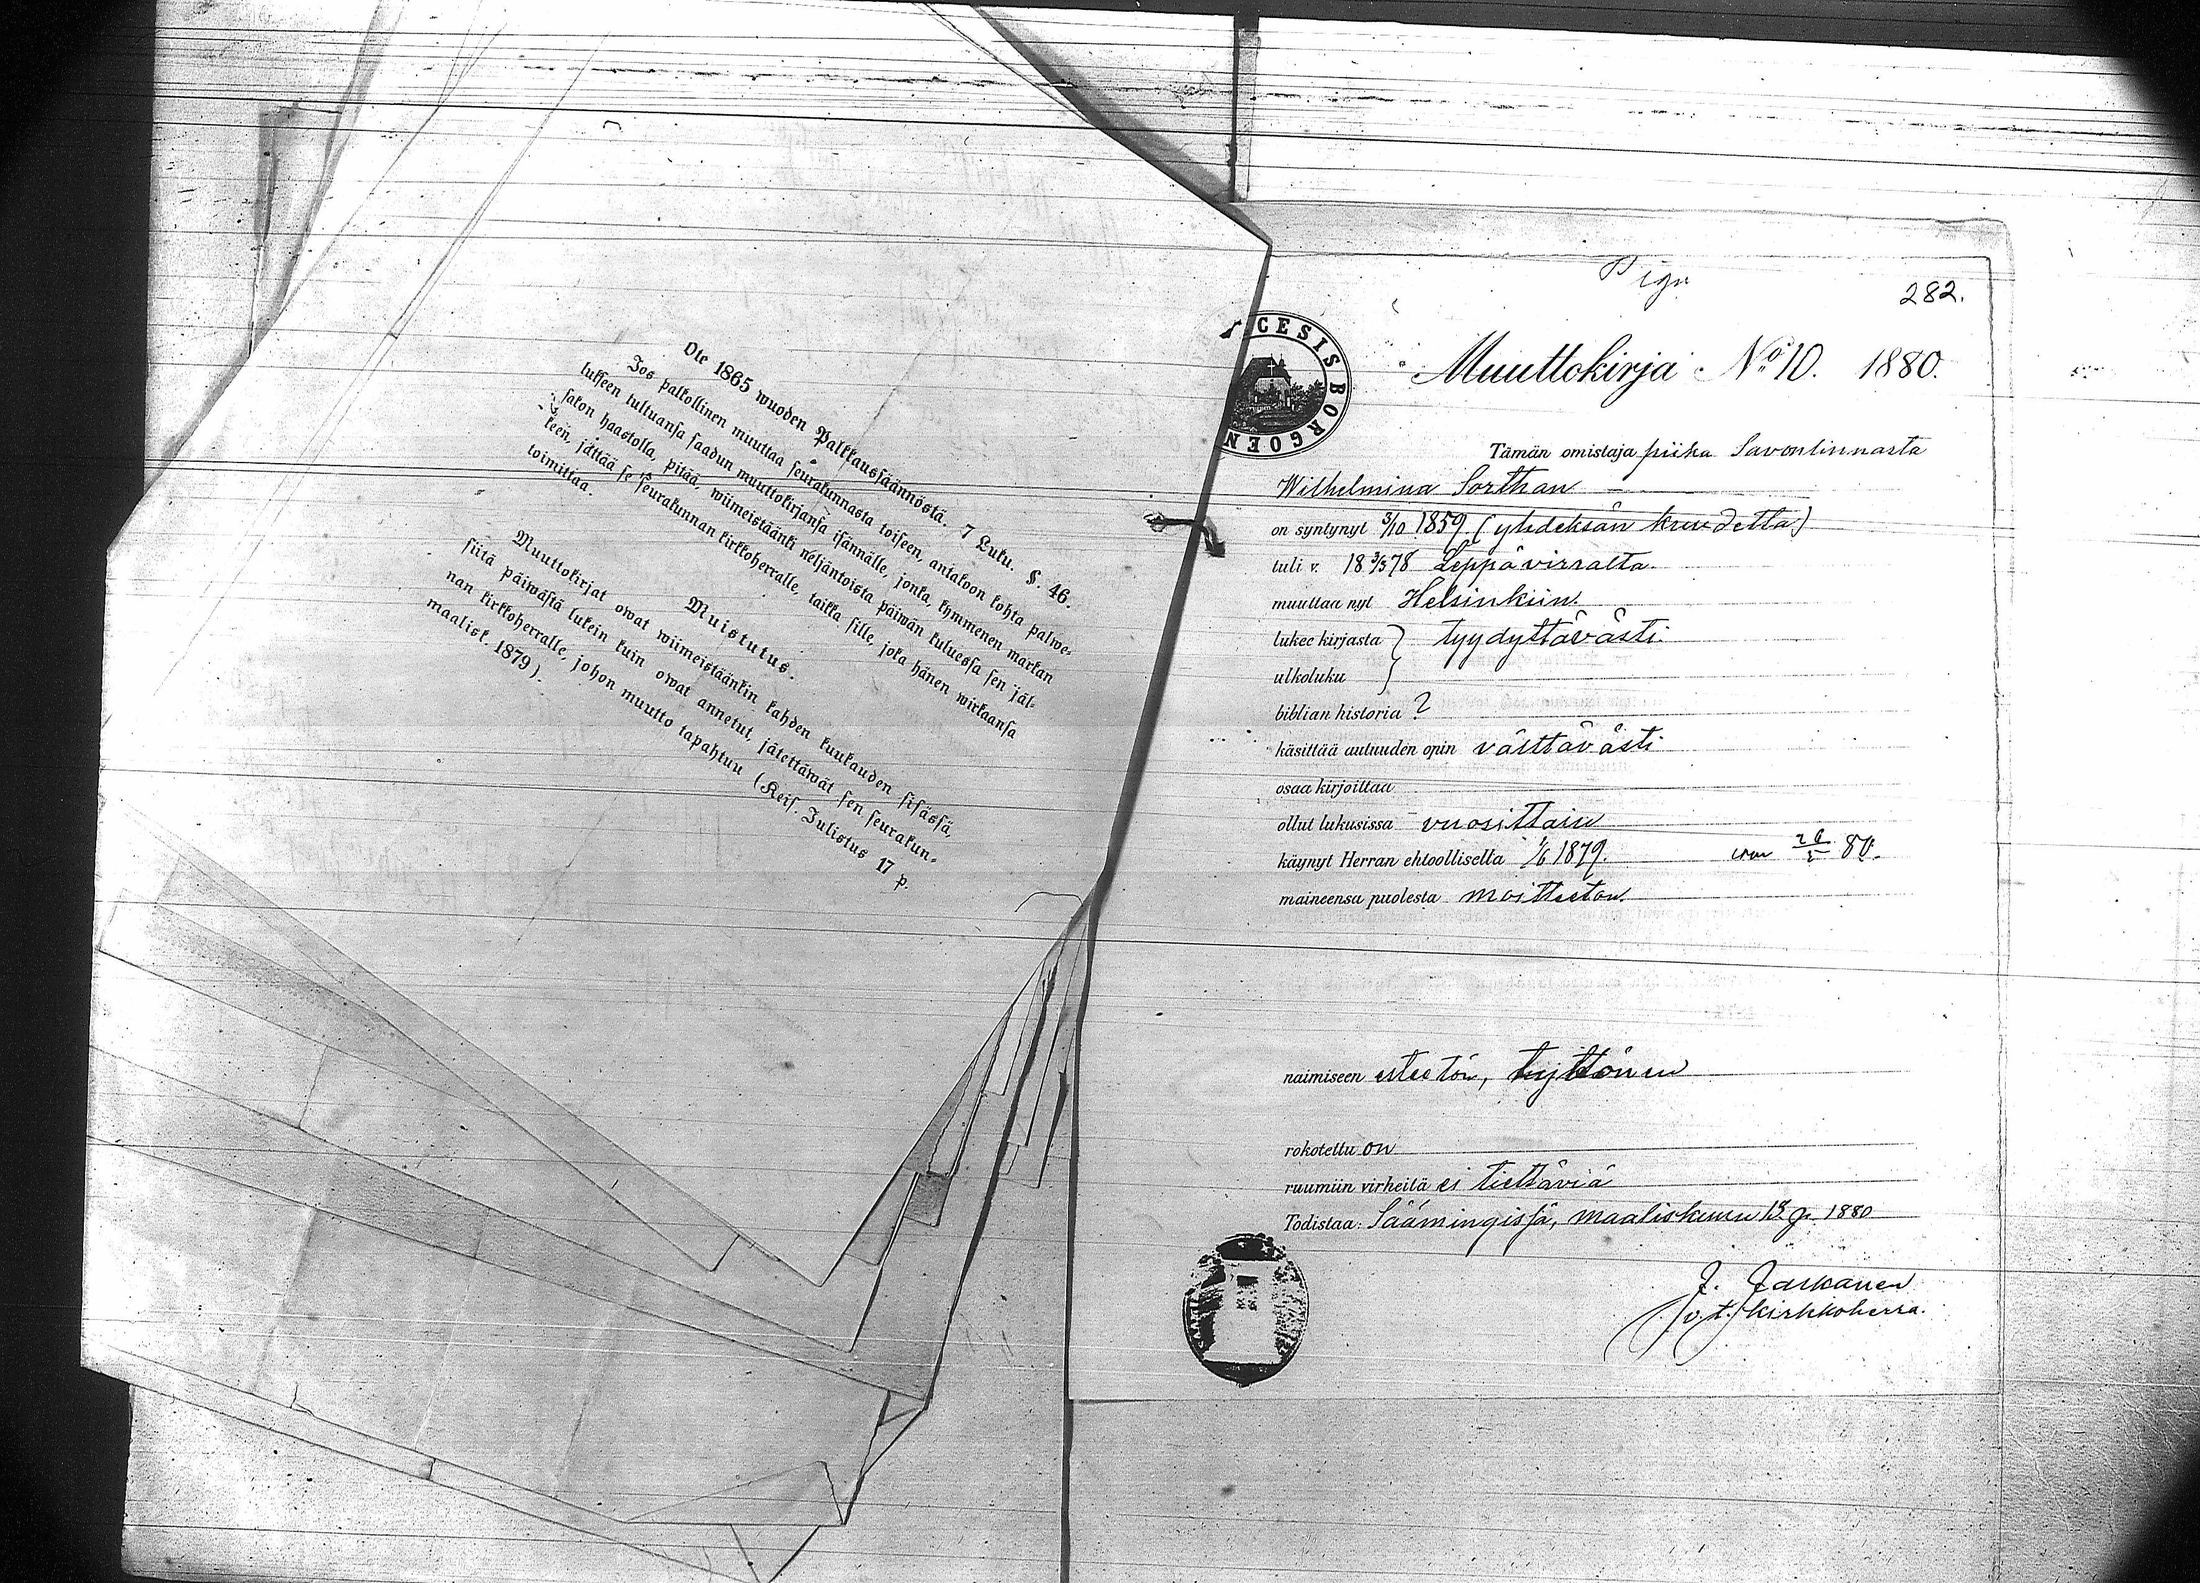 Ote 1865 wuoden Palkkaussäännöstä. 7 Luku. §. 46.
Jos palkollinen muuttaa seurakunnasta toiseen, antakoon kohta palwe-
lukseen tultuansa saadun muuttokirjansa isännälle, jonka, kymmenen markan
sakon haastolla, pitää, wiimeistäänki neljäntoista päiwän kuluessa sen jäl-
keen, jättää se seurakunnan kirkkoherralle, taikka sille, joka hänen wirkaansa
toimittaa.
Muistutus.
Muuttokirjat owat wiimeistäänkin kahden kuukauden sisässä,
siitä päiwästä lukein kuin owat annetut, jätettäwät sen seurakun-
nan kirkkoherralle, johon muutto tapahtuu (Keis. Julistus 17 p.
maalisk. 1879).
Piga
282.
CESIS BORGOEN
Muuttokirja No 10. 1880.
Tämän omistaja piika Savonlinnasta
Wilhelmina Sorthan
on syntynyt 3/10 1859 (yhdeksän kuudetta)
tuli v. 18 3/3 78 Leppävirralta
muuttaa nyt Helsinkiin
lukee kirjasta } tyydyttävästi
ulkoluku
biblian historia ?
käsittää autuuden opin välttävästi
osaa kirjoittaa
ollut lukusissa vuosittain
käynyt Herran ehtoollisella 1/6 1879. 80.
maineensa puolesta moitteeton
naimiseen esteetön,
rokotettu on
ruumiin virheitä ei tiettäviä
Todistaa: Säämingissä, maaliskuun p. 1880
J. Jaskanen
(v.t.) kirkkoherra.